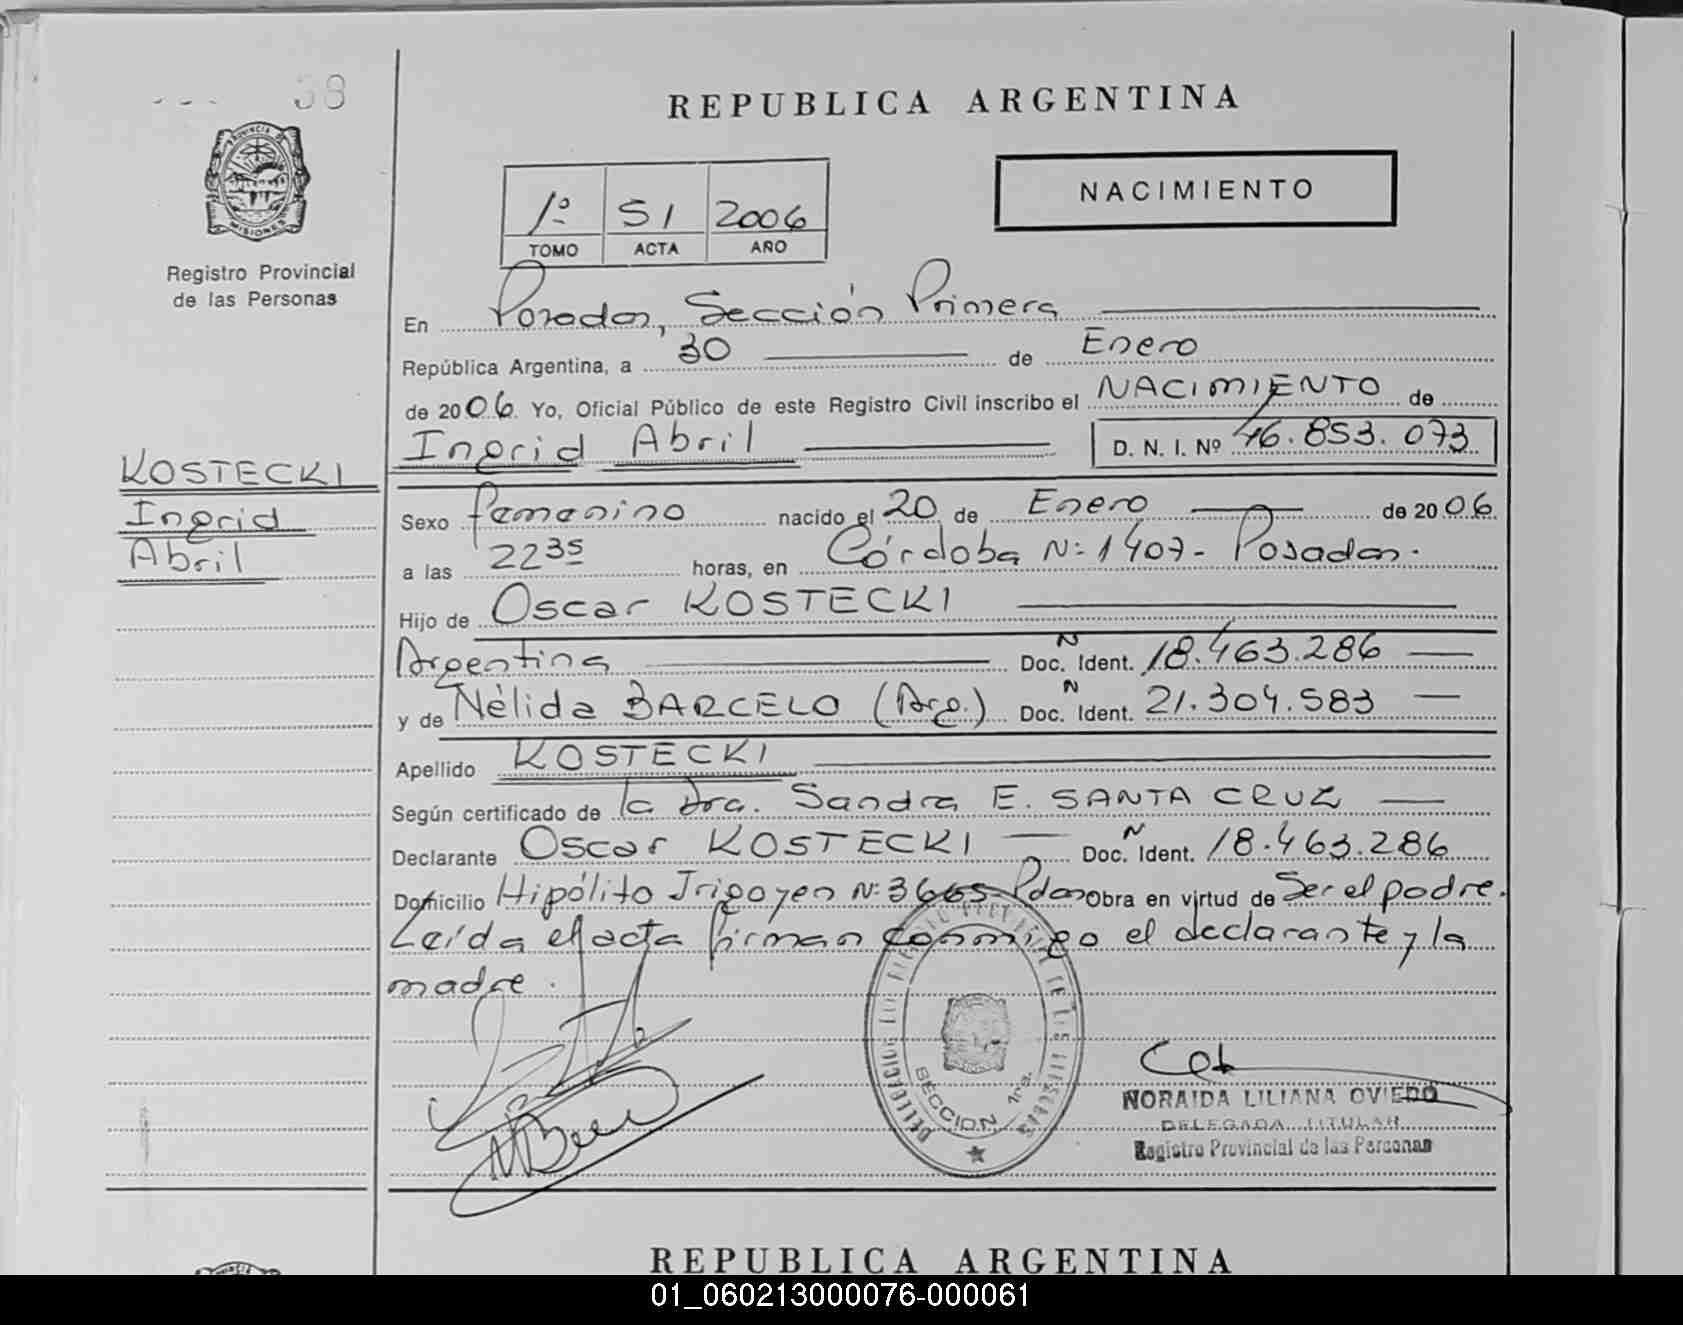 38
REPUBLICA ARGENTINA
PROVINCIA DE
MISIONES
Registro Provincial
de las Personas
1º 51 2006
TOMO ACTA AÑO
NACIMIENTO
En Posadas, Sección Primera
República Argentina, a 30 de Enero
de 2006. Yo, Oficial Público de este Registro Civil inscribo el NACIMIENTO de
Ingrid Abril D. N. I. Nº 46.853.073
KOSTECKI
Ingrid
Abril
Sexo femenino nacido el 20 de Enero de 2006
a las 22 35 horas, en Córdoba Nº 1407 - Posadas.
Hijo de Oscar KOSTECKI
Argentina Doc. N Ident. 18.463.286
y de Nélida BARCELO (Arg.) Doc. N Ident. 21.304.583
Apellido KOSTECKI
Según certificado de la Dra. Sandra E. SANTA CRUZ
Declarante Oscar KOSTECKI Doc. N Ident. 18.463.286
Domicilio Hipólito Irigoyen Nº 3665 Pdas Obra en virtud de Ser el padre.
Leída el acta firman conmigo el declarante y la
madre.
SECCION 1ra.
NORAIDA LILIANA OVIEDO
DELEGADA TITULAR
Registro Provincial de las Personas
REPUBLICA ARGENTINA
01_060213000076-000061